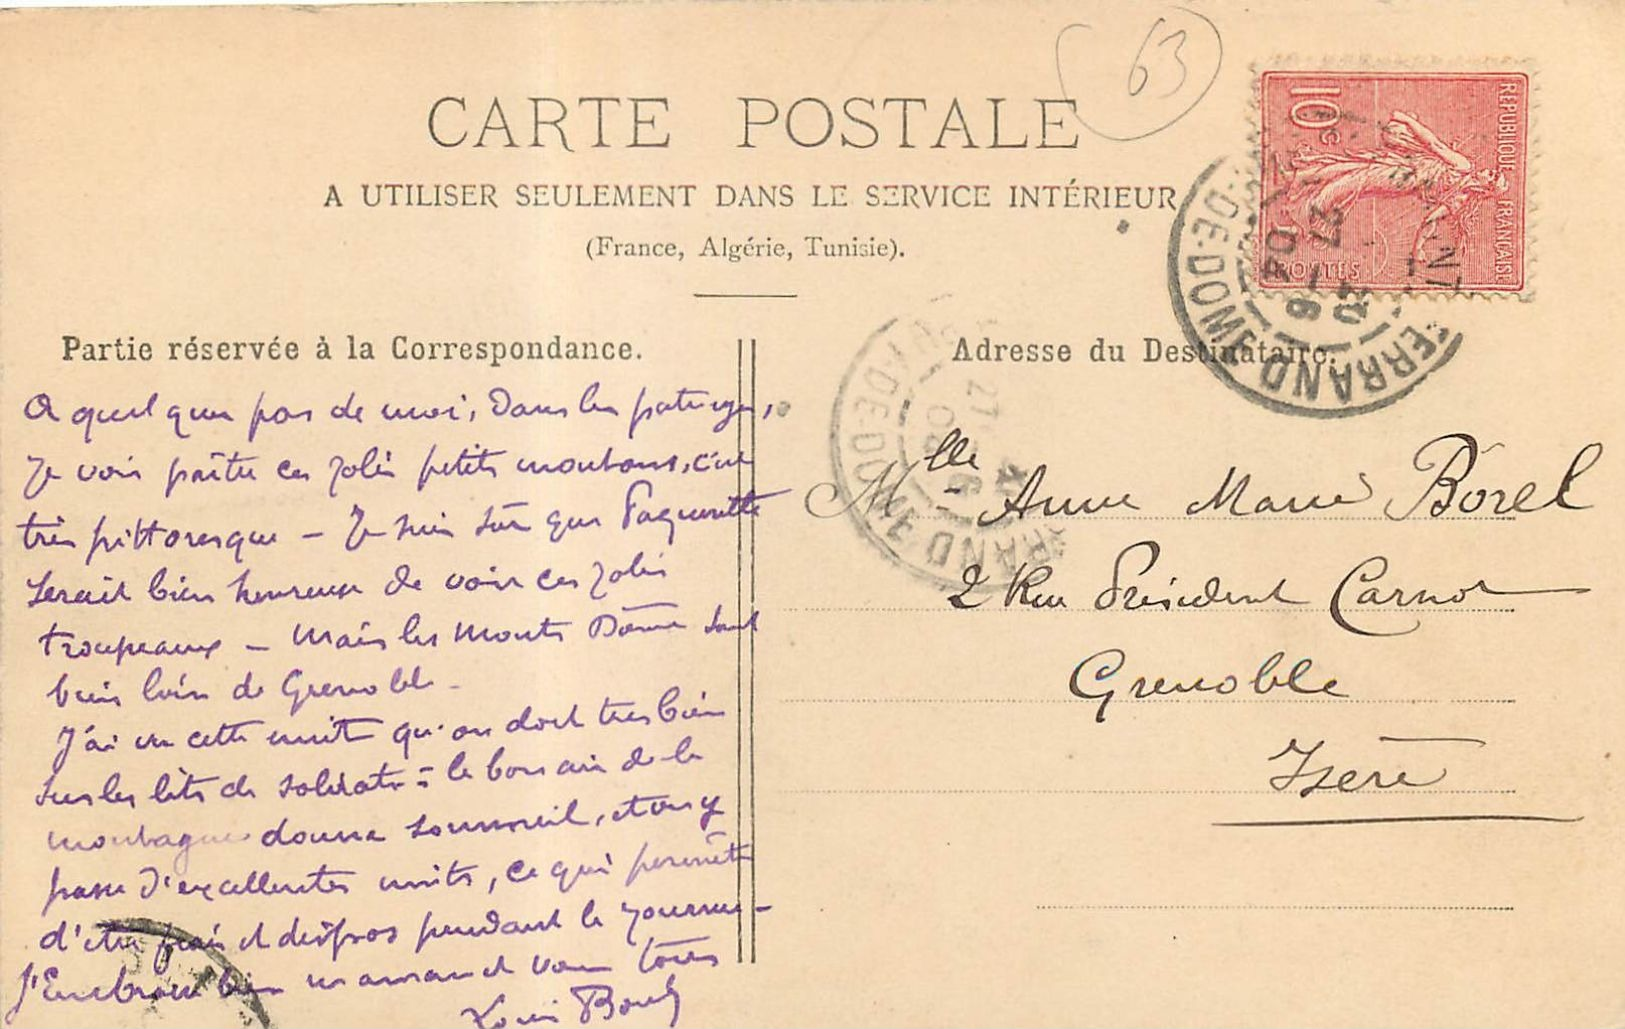 63
CARTE POSTALE
A UTILISER SEULEMENT DANS LE SERVICE INTÉRIEUR
(France, Algérie, Tunisie).
10c
REPUBLIQUE FRANÇAISE
POSTES
CLERMONT-FERRAND
PUY-DE-DOME
27 -6
04
Partie réservée à la Correspondance.
A quelques pas de moi, dans les paturages,
Je vois paître ces jolis petits moutons, c'est
très pittoresque — Je suis sûr que Paquerette
serait bien heureuse de voir ces jolis
troupeaux — Mais les Monts Dôme sont
bien loin de Grenoble —
J'ai vu cette nuit qu'on dort très bien
sur les lits de soldats = le bon air de la
montagne donne sommeil, et on y
passe d'excellentes nuits, ce qui permet
d'être frais et dispos pendant la journée —
J'Embrasse bien maman et vous toutes
Louis Borel
Adresse du Destinataire.
Mlle - Anne Marie Borel
2 Rue Président Carnot
Grenoble
Isère
PUY-DE-DOME
27 -6
04